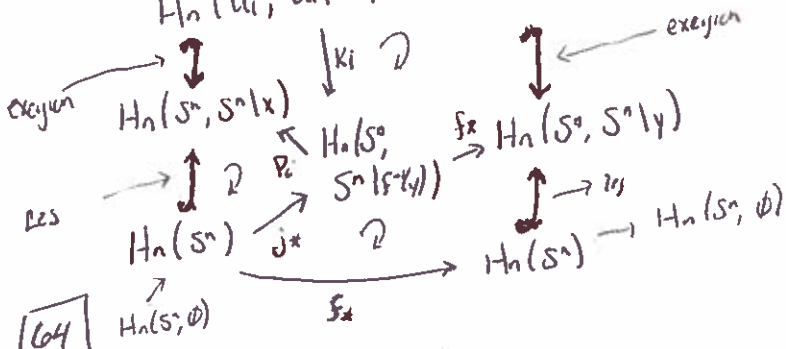 Hn (Ui,
Ki
excision
excision
Hn (Sⁿ, Sⁿ \ x)
Hn (Sⁿ,
Sⁿ \ f⁻¹(y))
f*
Hn (Sⁿ, Sⁿ \ y)
Pi
LES
les
Hn (Sⁿ)
j*
Hn (Sⁿ)
Hn (Sⁿ, ∅)
64
Hn (Sⁿ, ∅)
f*